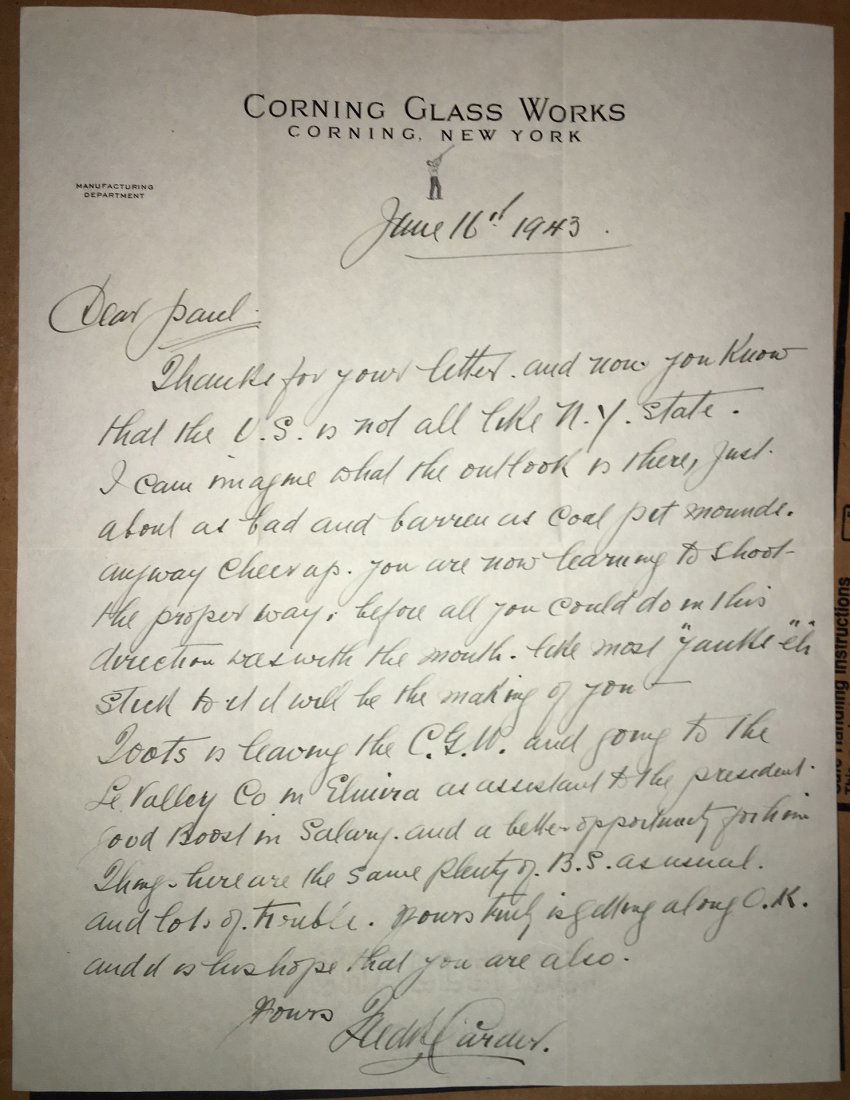 CORNING GLASS WORKS
CORNING, NEW YORK
MANUFACTURING
DEPARTMENT
June 16th 1943.
Dear Paul.
Thanks for your letter. and now you Know
that the U.S. is not all like N.Y. State.
I can imagine what the outlook is there, Just.
about as bad and barren as Coal pit mounds.
anyway Cheer up. you are now learning to Shoot
the proper way, before all you could do in this
direction was with the mouth. like most "Yanks" eh
Stick to it it will be the making of you —
Toots is leaving the C.G.W. and going to the
Le Valley Co in Elmira as assistant to the president.
good Boost in Salary. and a better opportunity for him
Things here are the same plenty of B.S. as usual.
and lots of trouble. yours truly is getting along O.K.
and it is his hope that you are also.
Yours Fredk Carder.
Handling Instructions